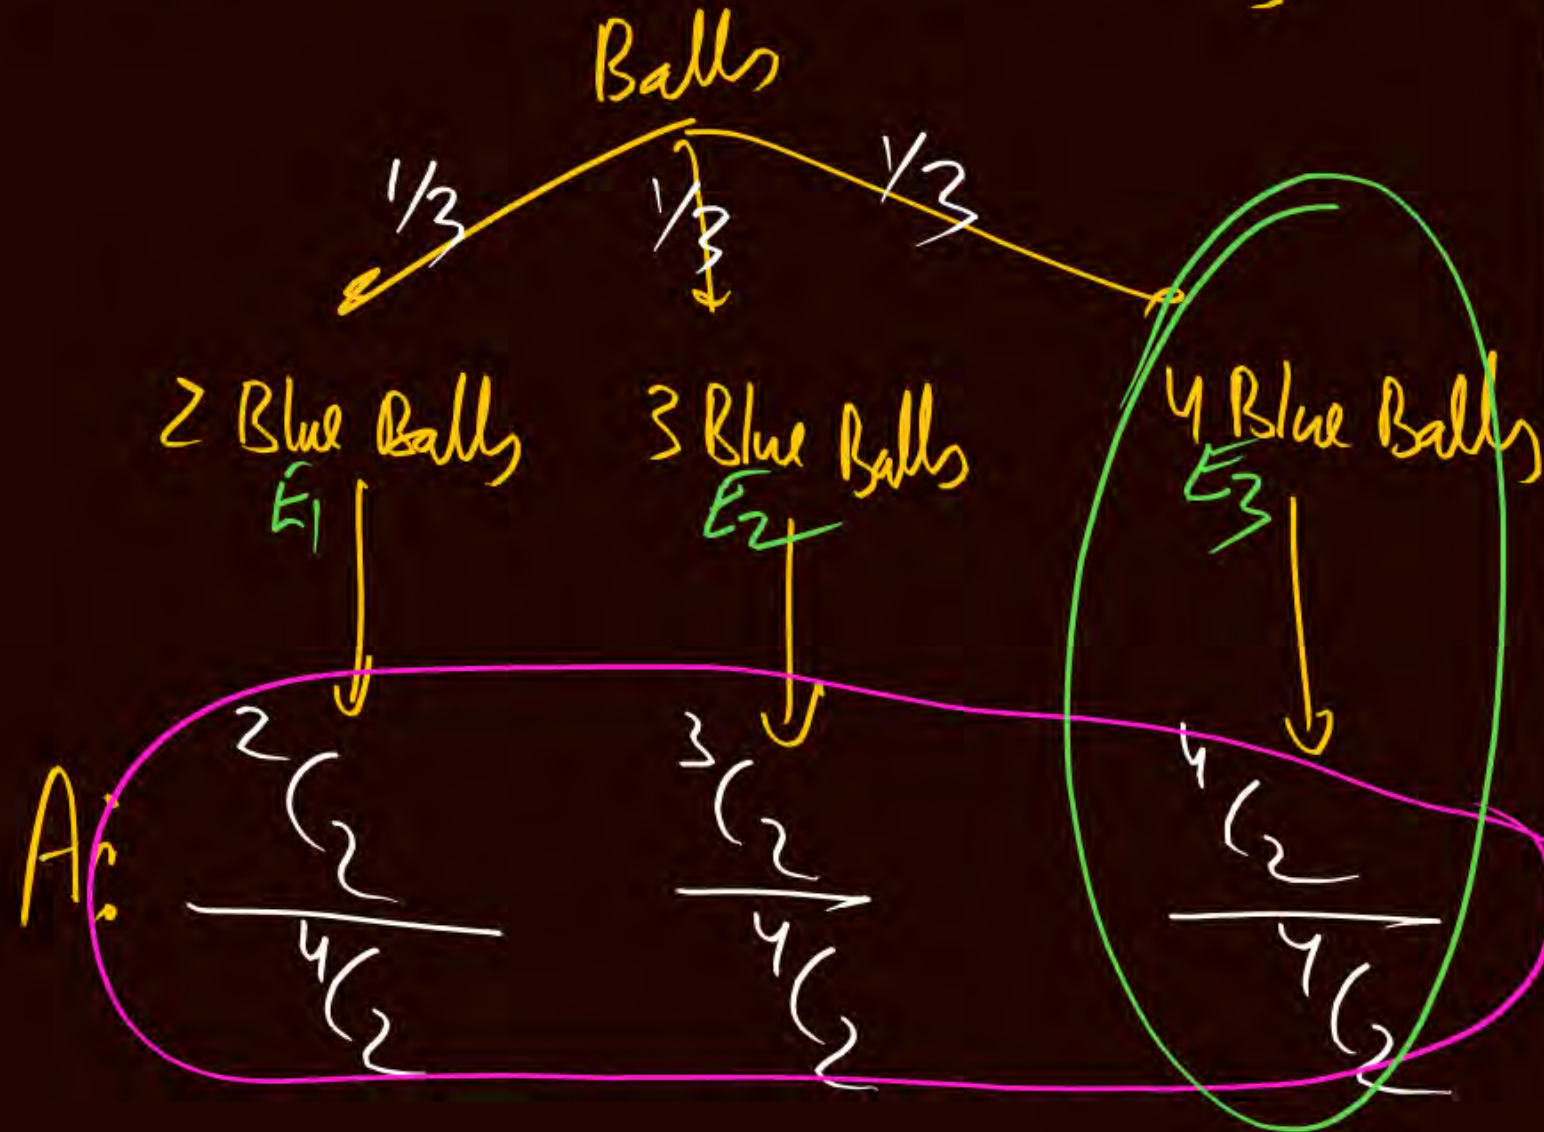 Balls
1/3 1/3 1/3
2 Blue Balls 3 Blue Balls 4 Blue Balls
E1 E2 E3
A: ²C₂ ³C₂ ⁴C₂
⁴C₂ ⁴C₂ ⁴C₂